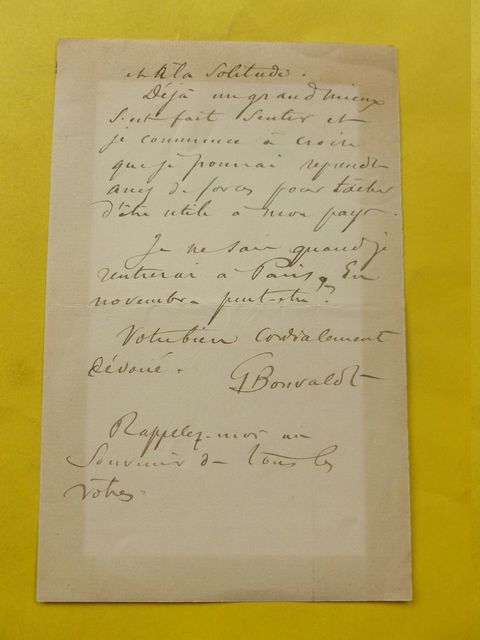 et à la solitude.
Déjà un grand mieux
s'est fait sentir et
je commence à croire
que je pourrai reprendre
assez de forces pour tâcher
d'être utile à mon pays.
Je ne sais quand je
rentrerai à Paris. En
novembre peut-être ?
Votre bien cordialement
dévoué.
GBonvalot
Rappelez-moi au
souvenir de tous les
vôtres.